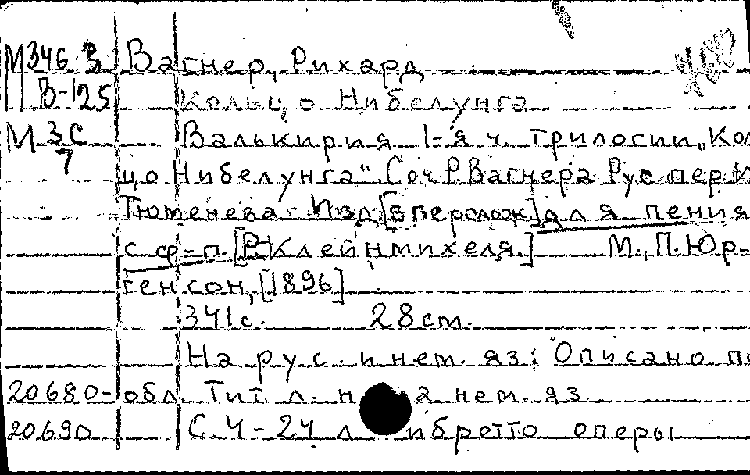 М346 В Вагнер, Рихард
В-125 Кольцо Нибелунга
М 3С Валькирия 1-я ч. трилогии „Кол
7
цо Нибелунга" Соч Р. Вагнера Рус пер И
Тюменева Изд [в перелож] для пения
с ф-п. [Р. Клейнмихеля.] М., П. Юр-
генсон, [1896]
341с. 28cm.
На рус. и нем. яз. Описано по
20680- обл. Тит л. н а нем. яз
20690 С. 4-24 либретто оперы